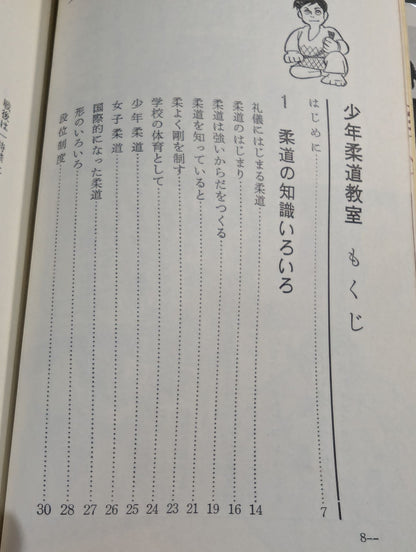 少年柔道教室 もくじ
はじめに……7
1 柔道の知識いろいろ
礼儀にはじまる柔道……14
柔道のはじまり……16
柔道は強いからだをつくる……19
柔道を知っていると……21
柔よく剛を制す……23
学校の体育として……24
少年柔道……25
女子柔道……26
国際的になった柔道……27
形のいろいろ……28
段位制度……30
8--